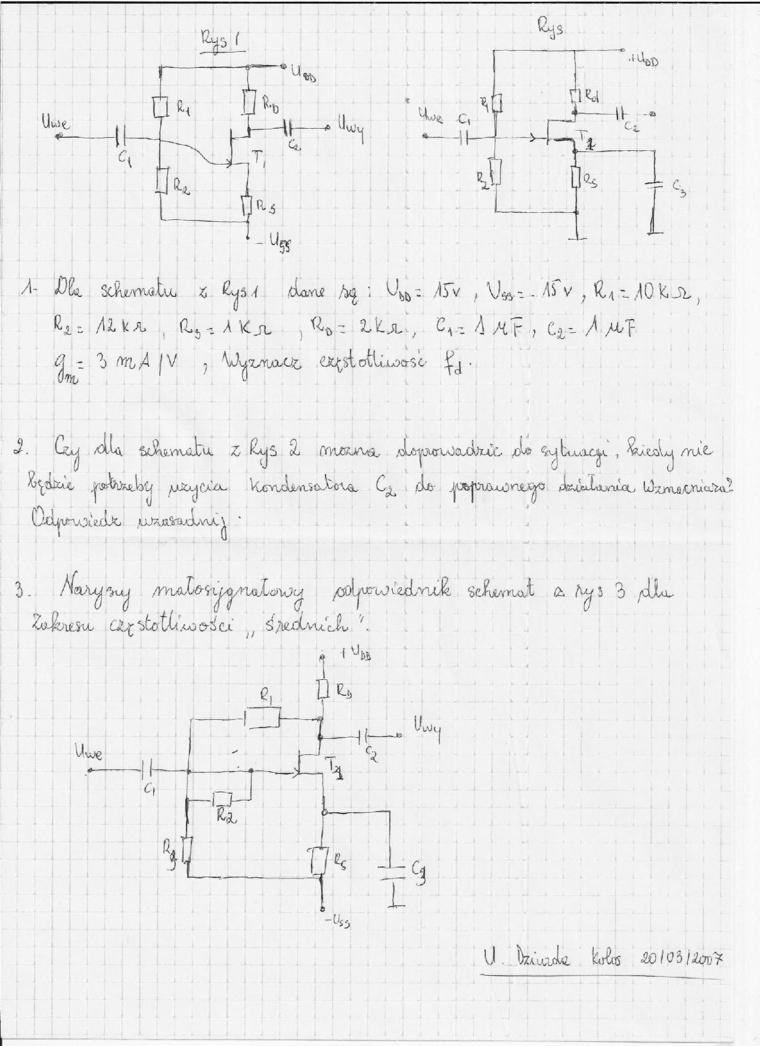 Rys 1
U_DD
R1
R_D
Uwe
C1
C2
Uwy
T1
R2
RS
- U_SS
Rys
+U_DD
R1
Rd
Uwe
C1
C2
R2
RS
C3
1. Dla schematu z Rys 1 dane są : U_DD = 15V , U_SS = - 15V , R1 = 10 KΩ ,
R2 = 12 KΩ , RS = 1 KΩ , R_D = 2 KΩ , C1 = 1 μF , C2 = 1 μF
gm = 3 mA/V , Wyznacz częstotliwość fd.
2. Czy dla schematu z Rys 2 można doprowadzić do sytuacji , kiedy nie
będzie potrzeby użycia kondensatora C2 do poprawnego działania wzmacniacza?
Odpowiedź uzasadnij.
3. Narysuj małosygnałowy odpowiednik schemat z rys 3 dla
zakresu częstotliwości „ średnich ".
+ U_DD
R_D
R1
Uwy
C2
Uwe
C1
R2
RS
-U_SS
U. Dziurda Kolos 20/03/2007